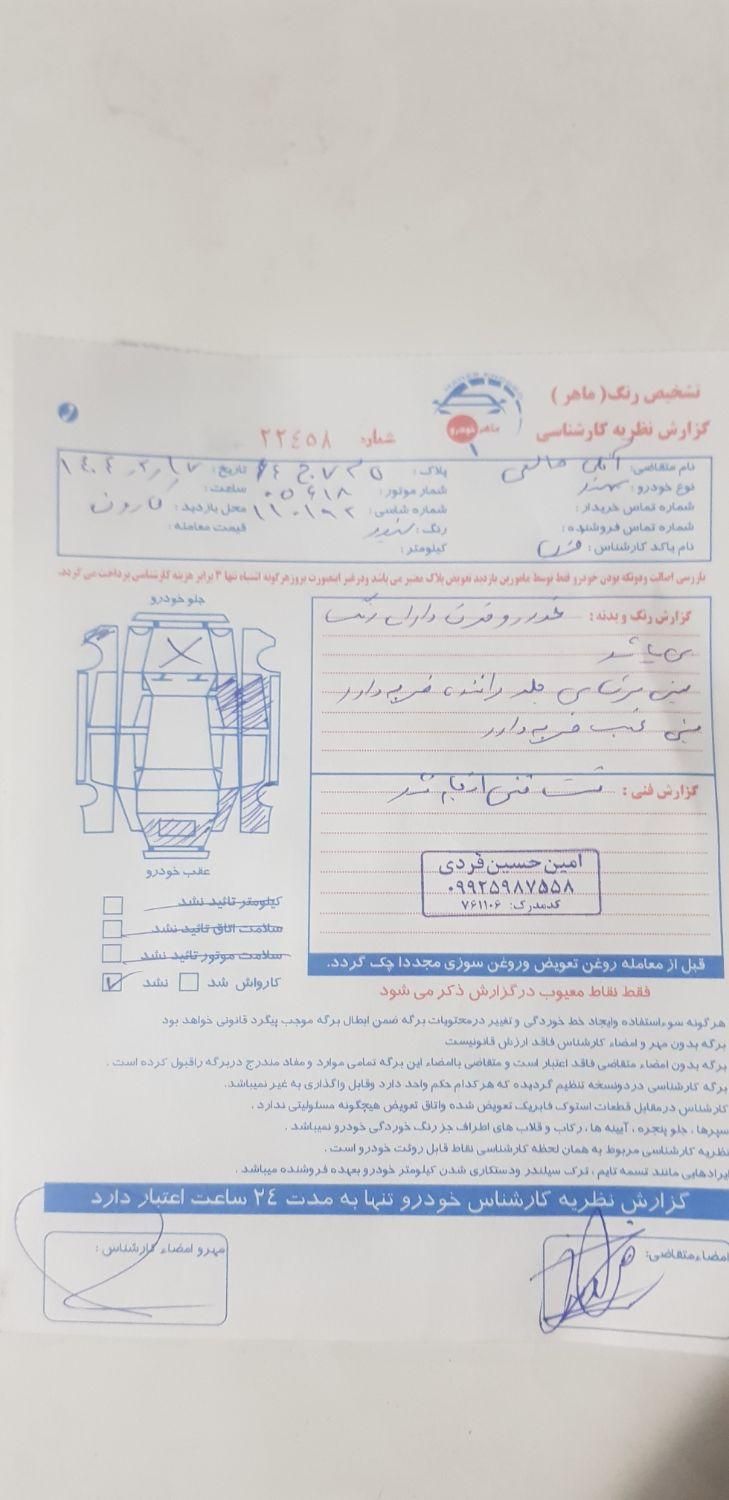 تشخیص رنگ ( ماهر )
گزارش نظریه کارشناسی
ماهر خودرو
شماره ۲۲۴۵۸
نام متقاضی: آقای
پلاک:
تاریخ: ۱۴۰۴/۲/۱۷
نوع خودرو: سمند
شمار موتور: ۰۵۶۱۸
ساعت:
شماره تماس خریدار:
شماره شاسی: ۱۱۰۱۹۲
محل بازدید: کارون
شماره تماس فروشنده:
رنگ: سفید
قیمت معامله:
نام یا کد کارشناس:
کیلومتر:
بازرسی اصالت و دوتکه بودن خودرو فقط توسط مامورین بازدید تعویض پلاک معتبر می باشد و در غیر اینصورت بروز هرگونه اشتباه تنها ۳ برابر هزینه کارشناسی پرداخت می گردد.
جلو خودرو
گزارش رنگ و بدنه: خودرو فوق دارای رنگ
می باشد
جلو راننده ضربه دارد
عقب ضربه دارد
عقب خودرو
گزارش فنی: تست فنی انجام نشد
امین حسین فردی
۰۹۹۲۵۹۸۷۵۵۸
کدمدرک: ۷۶۱۱۰۶
کیلومتر تائید نشد
سلامت اتاق تائید نشد
سلامت موتور تائید نشد
کارواش شد نشد
قبل از معامله روغن تعویض وروغن سوزی مجددا چک گردد.
فقط نقاط معیوب در گزارش ذکر می شود
هرگونه سوءاستفاده وایجاد خط خوردگی و تغییر در محتویات برگه ضمن ابطال برگه موجب پیگرد قانونی خواهد بود
برگه بدون مهر و امضاء کارشناس فاقد ارزش قانونیست
برگه بدون امضاء متقاضی فاقد اعتبار است و متقاضی باامضاء این برگه تمامی موارد و مفاد مندرج دربرگه راقبول کرده است .
برگه کارشناسی دردونسخه تنظیم گردیده که هرکدام حکم واحد دارد وقابل واگذاری به غیر نمیباشد.
کارشناس درمقابل قطعات استوک فابریک تعویض شده واتاق تعویض هیچگونه مسئولیتی ندارد .
سپرها ، جلو پنجره ، آیینه ها ، رکاب و قلاب های اطراف جز رنگ خوردگی خودرو نمیباشد .
نظریه کارشناسی مربوط به همان لحظه کارشناسی نقاط قابل روئت خودرو است .
ایرادهایی مانند تسمه تایم ، ترک سیلندر ودستکاری شدن کیلومتر خودرو بعهده فروشنده میباشد .
گزارش نظریه کارشناس خودرو تنها به مدت ۲۴ ساعت اعتبار دارد
امضاء متقاضی:
مهر و امضاء کارشناس :